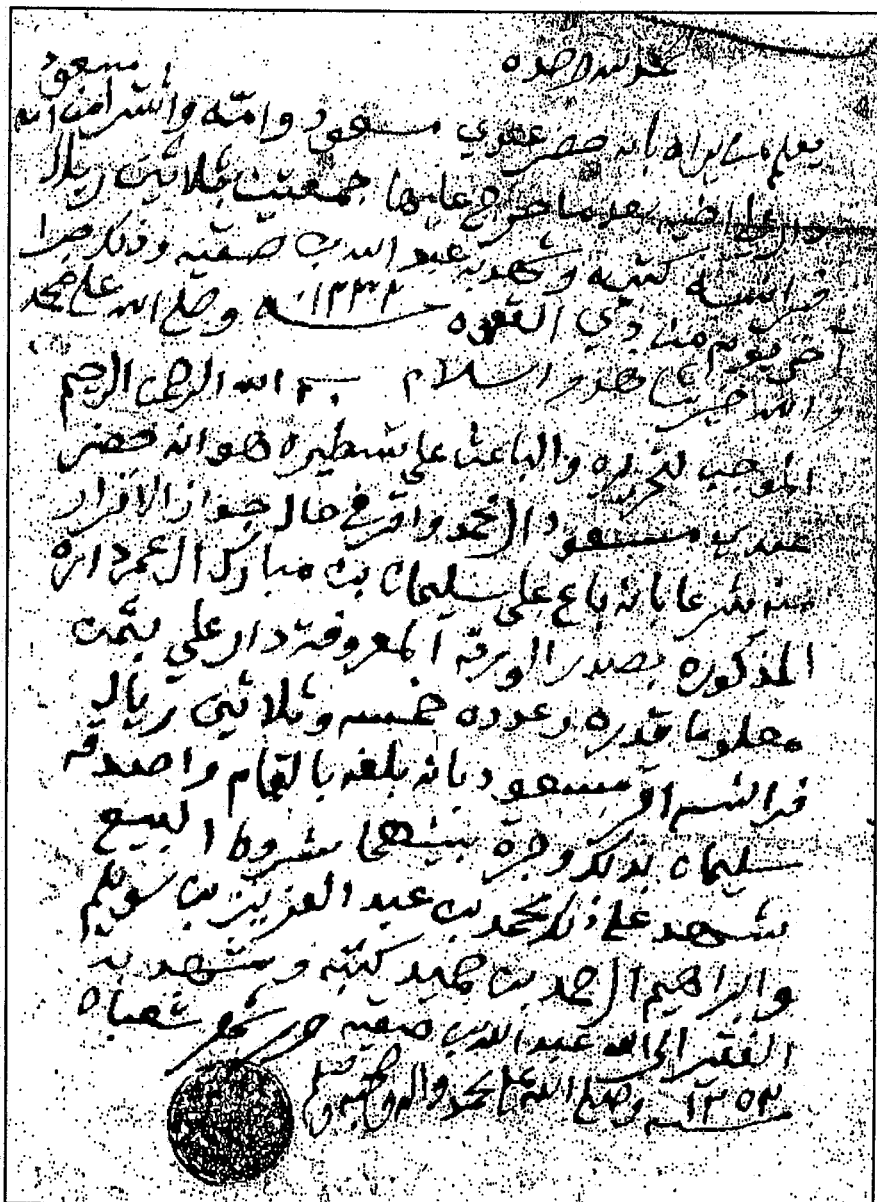 الحمد لله وحده
يعلم من يراه بأنه حضر عندي مسعود وامه واشترا من امه مسعود
دار علي بعد ما حرج عليها جمعتين بثلاثين ريال
فرانسه كتبه وشهد به عبد الله بن صقيه وذلك جرا
آخر يوم من ذي القعده ١٣٣٢ سنه وصلى الله على محمد
والله خير شاهد والسلام بسم الله الرحمن الرحيم
الموجب لتحريره والباعث على تسطيره هو انه حضر
عندي مسعود ال محمد واقر في حال جواز الاقرار
منه شرعا بانه باع على سليمان بن مبارك ال عمر داره
المذكوره بصدر الورقه المعروفة دار علي بثمن
معلوما قدره وعدده خمسه وثلاثين ريال
فرانسه اقر مسعود بانه بلغه بالتمام واصدقه
سليمان بذلك وجره بينهما شروط البيع
شهد على ذلك محمد بن عبد العزيز بن سويلم
وابراهيم ال حمد بن حميد كتبه وشهد به
الفقير الى الله عبد الله بن صقيه حرر شهر شعبان
١٣٥٣ سنه وصلى الله على محمد واله وصحبه وسلم